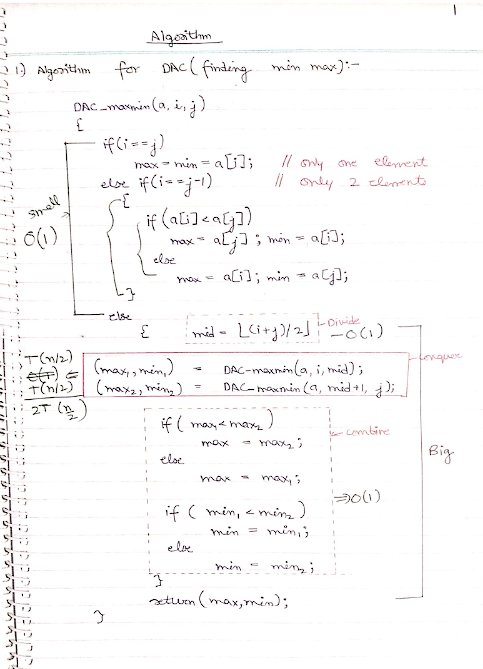 1
Algorithm
1.) Algorithm for DAC (finding min max):-
DAC_maxmin(a, i, j)
{
if(i==j)
max = min = a[i]; // only one element
else if(i==j-1) // only 2 elements
{
small
if (a[i]<a[j])
O(1)
max = a[j]; min = a[i];
else
max = a[i]; min = a[j];
}
else
{ mid = ⌊(i+j)/2⌋ Divide - O(1)
T(n/2) (max₁, min₁) = DAC-maxmin(a, i, mid); Conquer
T(n/2) (max₂, min₂) = DAC-maxmin(a, mid+1, j);
2T(n/2)
if (max₁<max₂)
max = max₂; combine
else
Big
max = max₁;
⇒O(1)
if ( min₁ < min₂)
min = min₁;
else
min = min₂;
}
return(max,min);
}